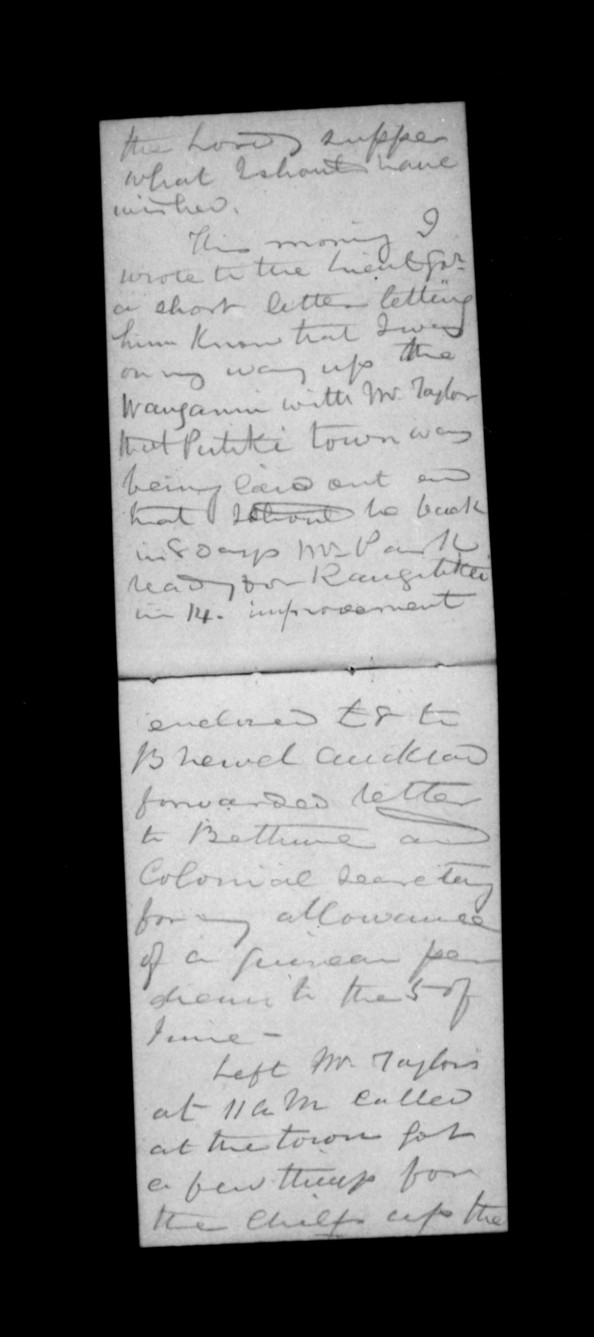 the Lords supper
what I should have
wished.
This morning I
wrote to the Lieut Govr
a short letter letting
him Know that I was
on my way up the
Wanganui with Mr Taylor
that Putiki town was
being laid out and
that I should be back
in 8 days Mr Park
ready for Rangitikei
in 14. improvement
enclosed £8 to
Auckland
forwarded letter
to Bethune and
Colonial Secretary
for my allowance
of a guinea per
diem to the 5 of
June -
Left Mr Taylors
at 11 a M called
at the town got
a few things for
the Chiefs up the